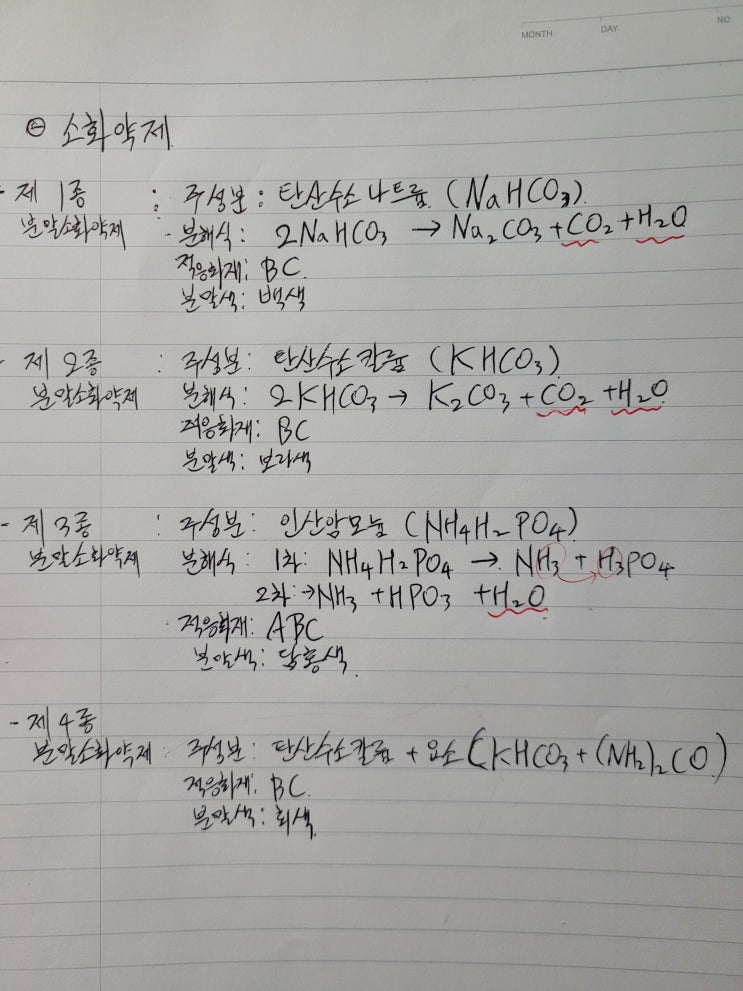 MONTH DAY NO
㊀ 소화약제
- 제 1종 : 주성분 : 탄산수소 나트륨 (NaHCO₃).
분말소화약제 - 분해식 : 2NaHCO₃ → Na₂CO₃ + CO₂ + H₂O
적응화재 : BC.
분말색 : 백색
- 제 2종 : 주성분 : 탄산수소칼륨 (KHCO₃)
분말소화약제 분해식 : 2KHCO₃ → K₂CO₃ + CO₂ + H₂O
적응화재 : BC
분말색 : 보라색
- 제 3종 : 주성분 : 인산암모늄 (NH₄H₂PO₄)
분말소화약제 분해식 : 1차 : NH₄H₂PO₄ → NH₃ + H₃PO₄
2차 : → NH₃ + HPO₃ + H₂O
적응화재 : ABC
분말색 : 담홍색
- 제 4종
분말소화약제 : 주성분 : 탄산수소칼륨 + 요소 (KHCO₃ + (NH₂)₂CO)
적응화재 : BC.
분말색 : 회색